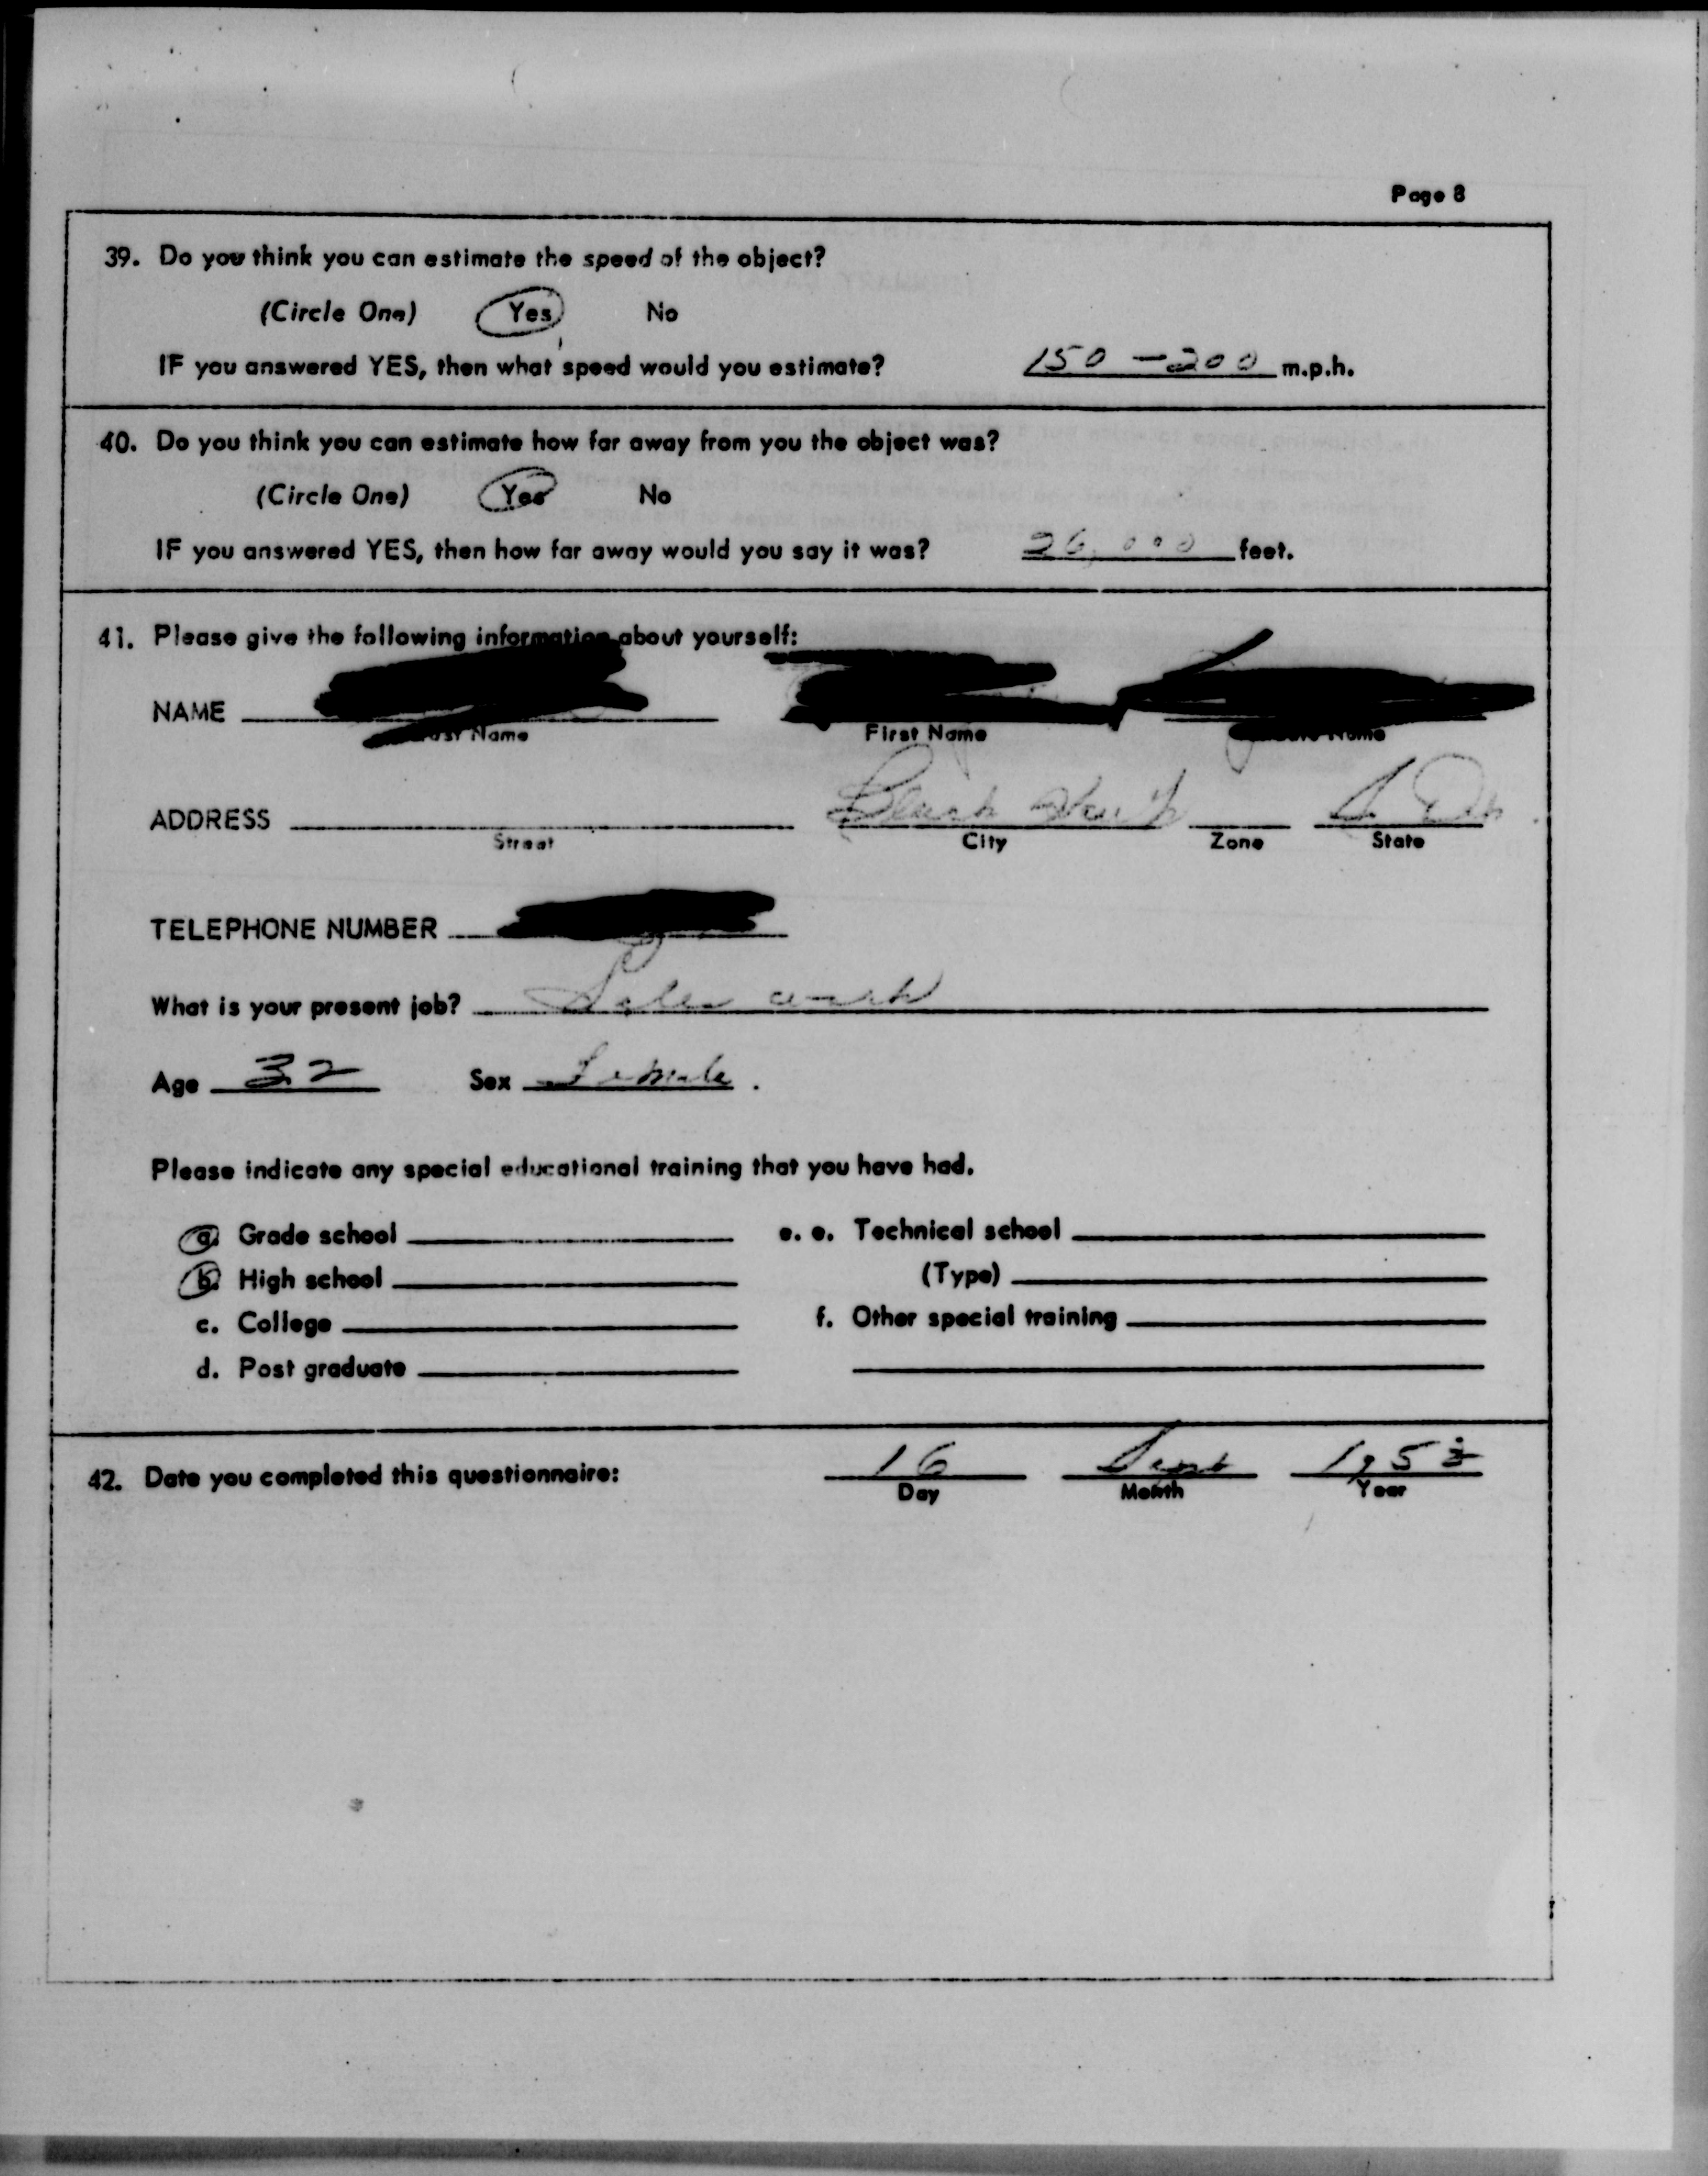 Page 8
39. Do you think you can estimate the speed of the object?
(Circle One) Yes No
IF you answered YES, then what speed would you estimate? 150 - 200 m.p.h.
40. Do you think you can estimate how far away from you the object was?
(Circle One) Yes No
IF you answered YES, then how far away would you say it was? 26,000 feet.
41. Please give the following information about yourself:
NAME
Name First Name Name
ADDRESS Black Hawk S. Dk.
Street City Zone State
TELEPHONE NUMBER
What is your present job? Sales work
Age 32 Sex Female.
Please indicate any special educational training that you have had.
a. Grade school e. e. Technical school
b. High school (Type)
c. College f. Other special training
d. Post graduate
42. Date you completed this questionnaire: 16 Sept 1953
Day Month Year